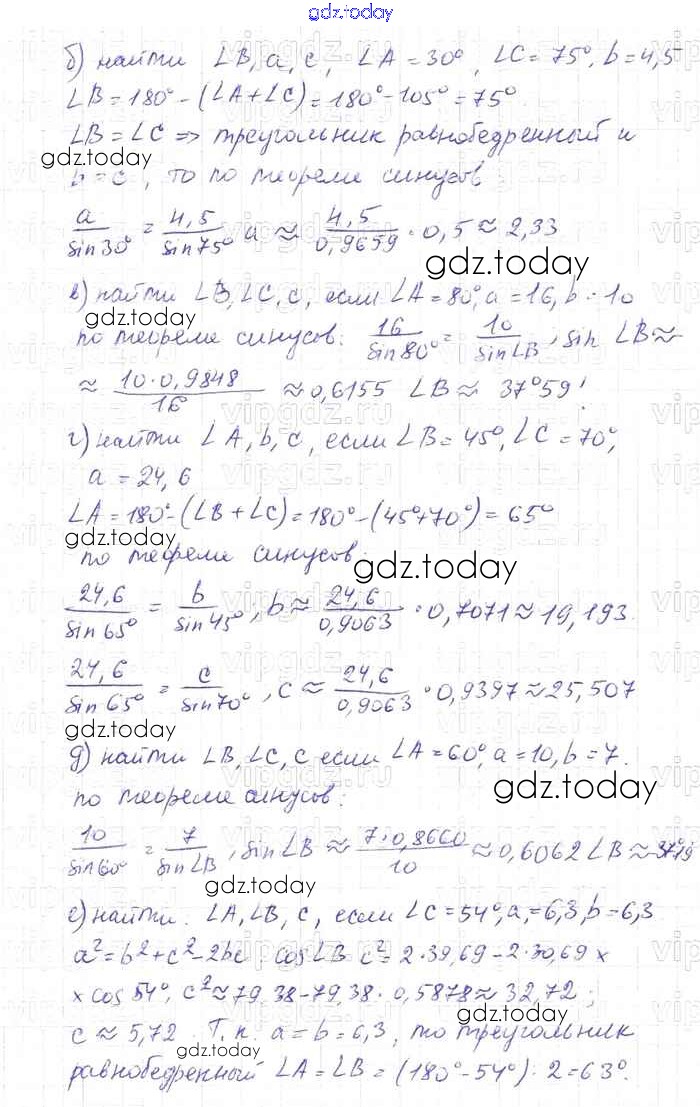 gdz.today
б) найти ∠B, a, c, ∠A = 30°, ∠C = 75°, b = 4,5
∠B = 180° - (∠A + ∠C) = 180° - 105° = 75°.
∠B = ∠C => треугольник равнобедренный и
gdz.today
b = c, то по теореме синусов
a/sin30° = 4,5/sin75° a ≈ 4,5/0,9659 · 0,5 ≈ 2,33
gdz.today
в) найти ∠B, ∠C, c, если ∠A = 80°, a = 16, b · 10
gdz.today
по теореме синусов: 16/sin80° = 10/sin∠B, sin ∠B ≈
≈ 10·0,9848/16 ≈ 0,6155 ∠B ≈ 37°59'
г) найти ∠A, b, c, если ∠B = 45°, ∠C = 70°,
a = 24,6
∠A = 180° - (∠B + ∠C) = 180° - (45°+70°) = 65°
gdz.today
по теореме синусов:
gdz.today
24,6/sin65° = b/sin45°, b ≈ 24,6/0,9063 · 0,7071 ≈ 19,193.
24,6/sin65° = c/sin70°, c ≈ 24,6/0,9063 · 0,9397 ≈ 25,507
gdz.today
д) найти ∠B, ∠C, c если ∠A = 60°, a = 10, b = 7.
gdz.today
по теореме синусов:
10/sin60° = 7/sin∠B, sin∠B ≈ 7·0,8660/10 ≈ 0,6062 ∠B ≈
gdz.today
е) найти: ∠A, ∠B, c, если ∠C = 54°, a = 6,3, b = 6,3
a² = b² + c² - 2bc cos∠B c² = 2·39,69 - 2·30,69 ×
× cos 54°, c² ≈ 79,38 - 79,38 · 0,5878 ≈ 32,72;
c ≈ 5,72. Т.к. a = b = 6,3, то треугольник
gdz.today
равнобедренный ∠A = ∠B = (180° - 54°) : 2 = 63°.